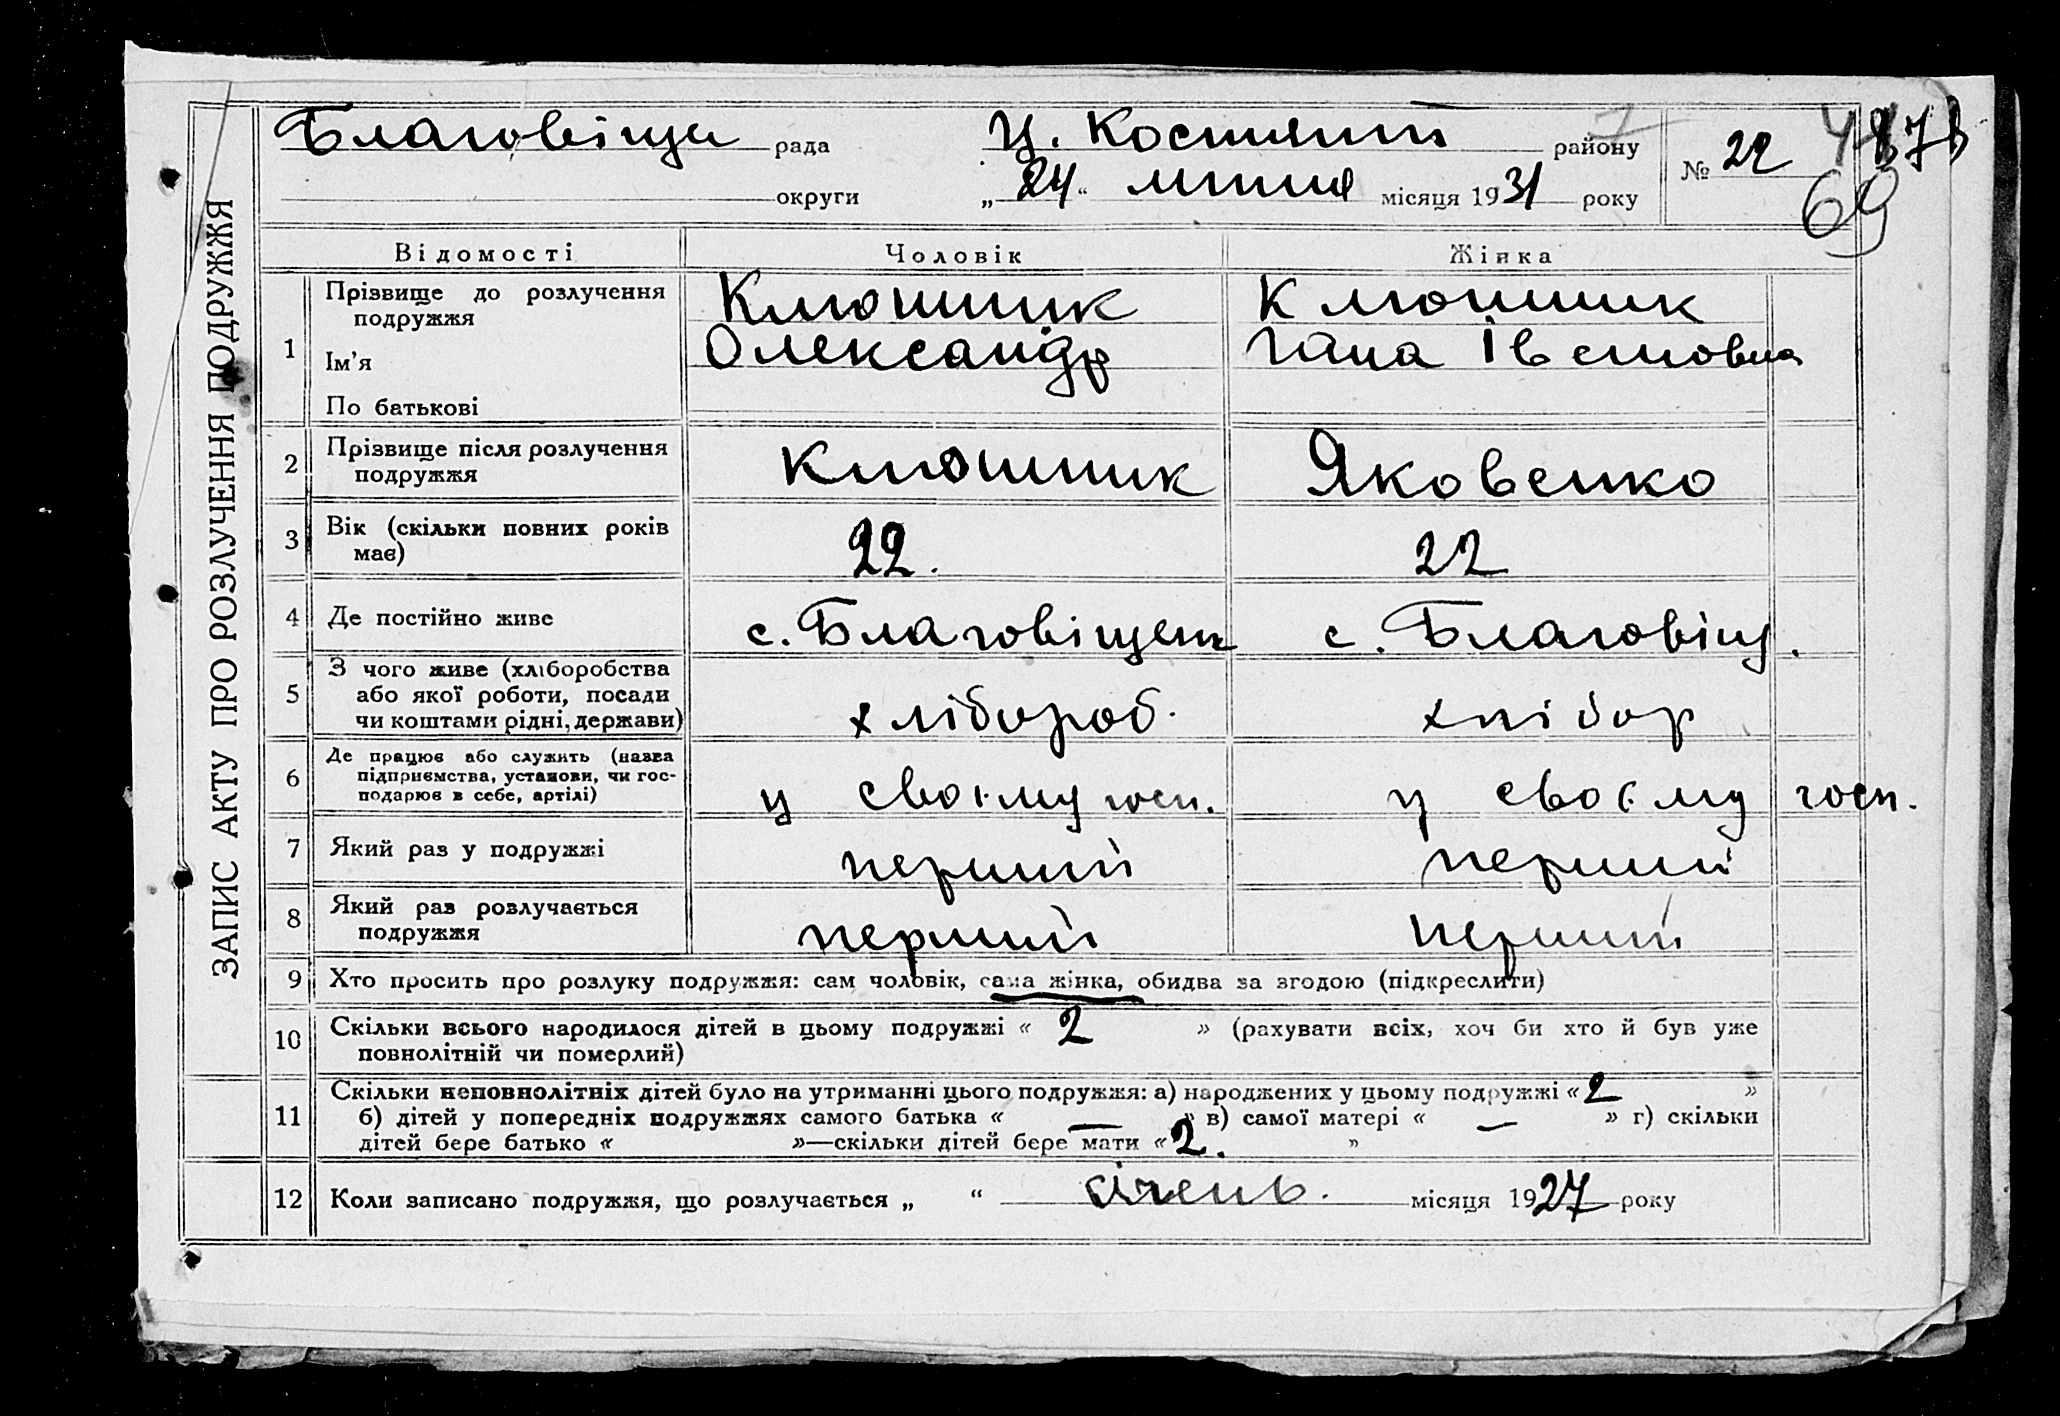 ЗАПИС АКТУ ПРО РОЗЛУЧЕННЯ ПОДРУЖЖЯ
Благовіще рада Ц. району № 22
округи „24“ липня місяця 1931 року
69
Відомості Чоловік Жінка
1 Прізвище до розлучення подружжя Клюшник Клюшник
Ім'я Олександр Гана
По батькові
2 Прізвище після розлучення подружжя Клюшник Яковенко
3 Вік (скільки повних років має) 22. 22
4 Де постійно живе с. Благовіщен с. Благовіщ.
5 З чого живе (хліборобства або якої роботи, посади чи коштами рідні, держави) хлібороб. хлібор
6 Де працює або служить (назва підприємства, установи, чи господарює в себе, артілі) у своєму госп. у своєму госп.
7 Який раз у подружжі перший перший
8 Який раз розлучається подружжя перший перший
9 Хто просить про розлуку подружжя: сам чоловік, сама жінка, обидва за згодою (підкреслити)
10 Скільки всього народилося дітей в цьому подружжі « 2 » (рахувати всіх, хоч би хто й був уже
повнолітній чи померлий)
11 Скільки неповнолітніх дітей було на утриманні цього подружжя: а) народжених у цьому подружжі « 2 »
б) дітей у попередніх подружжях самого батька « — » в) самої матері « — » г) скільки
дітей бере батько « »—скільки дітей бере мати « 2. »
12 Коли записано подружжя, що розлучається „ “ січень. місяця 1927 року